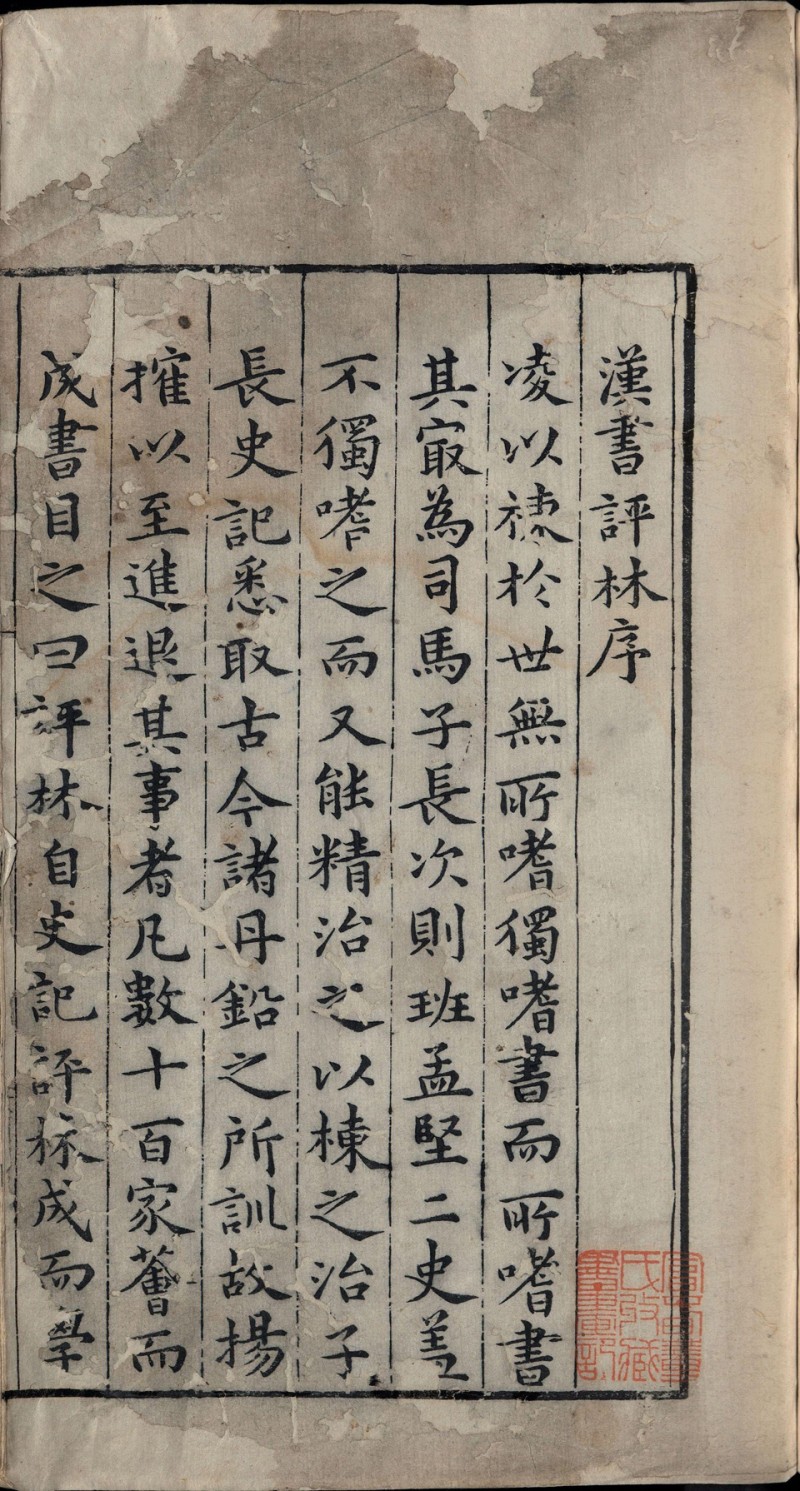 漢書評林序
凌以棟於世無所嗜獨嗜書而所嗜書
其㝡為司馬子長次則班孟堅二史葢
不獨嗜之而又能精治之以棟之治子
長史記悉取古今諸丹鉛之所訓故揚
搉以至進退其事者凡數十百家薈而
成書目之曰評林自史記評林成而學